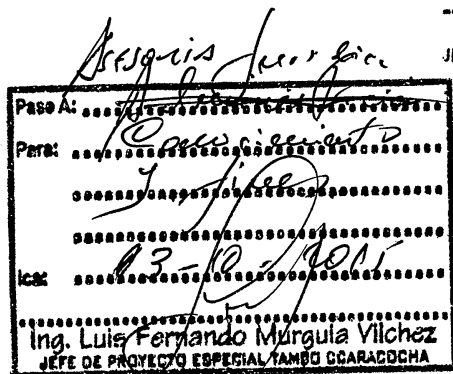 Asesoría
Pase A:
Para: Conocimiento
y fines
Ica: 13-10-2015
Ing. Luis Fernando Murguia Vilchez
JEFE DE PROYECTO ESPECIAL TAMBO CCARACOCHA